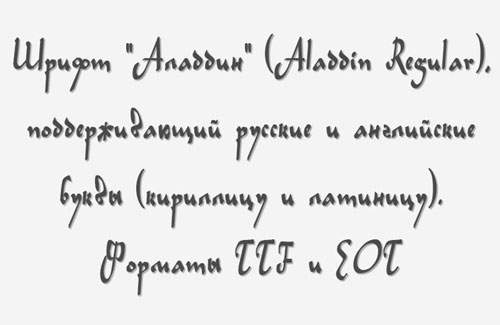 Шрифт "Аладдин" (Aladdin Regular),
поддерживающий русские и английские
буквы (кириллицу и латиницу).
Форматы TTF и EOT